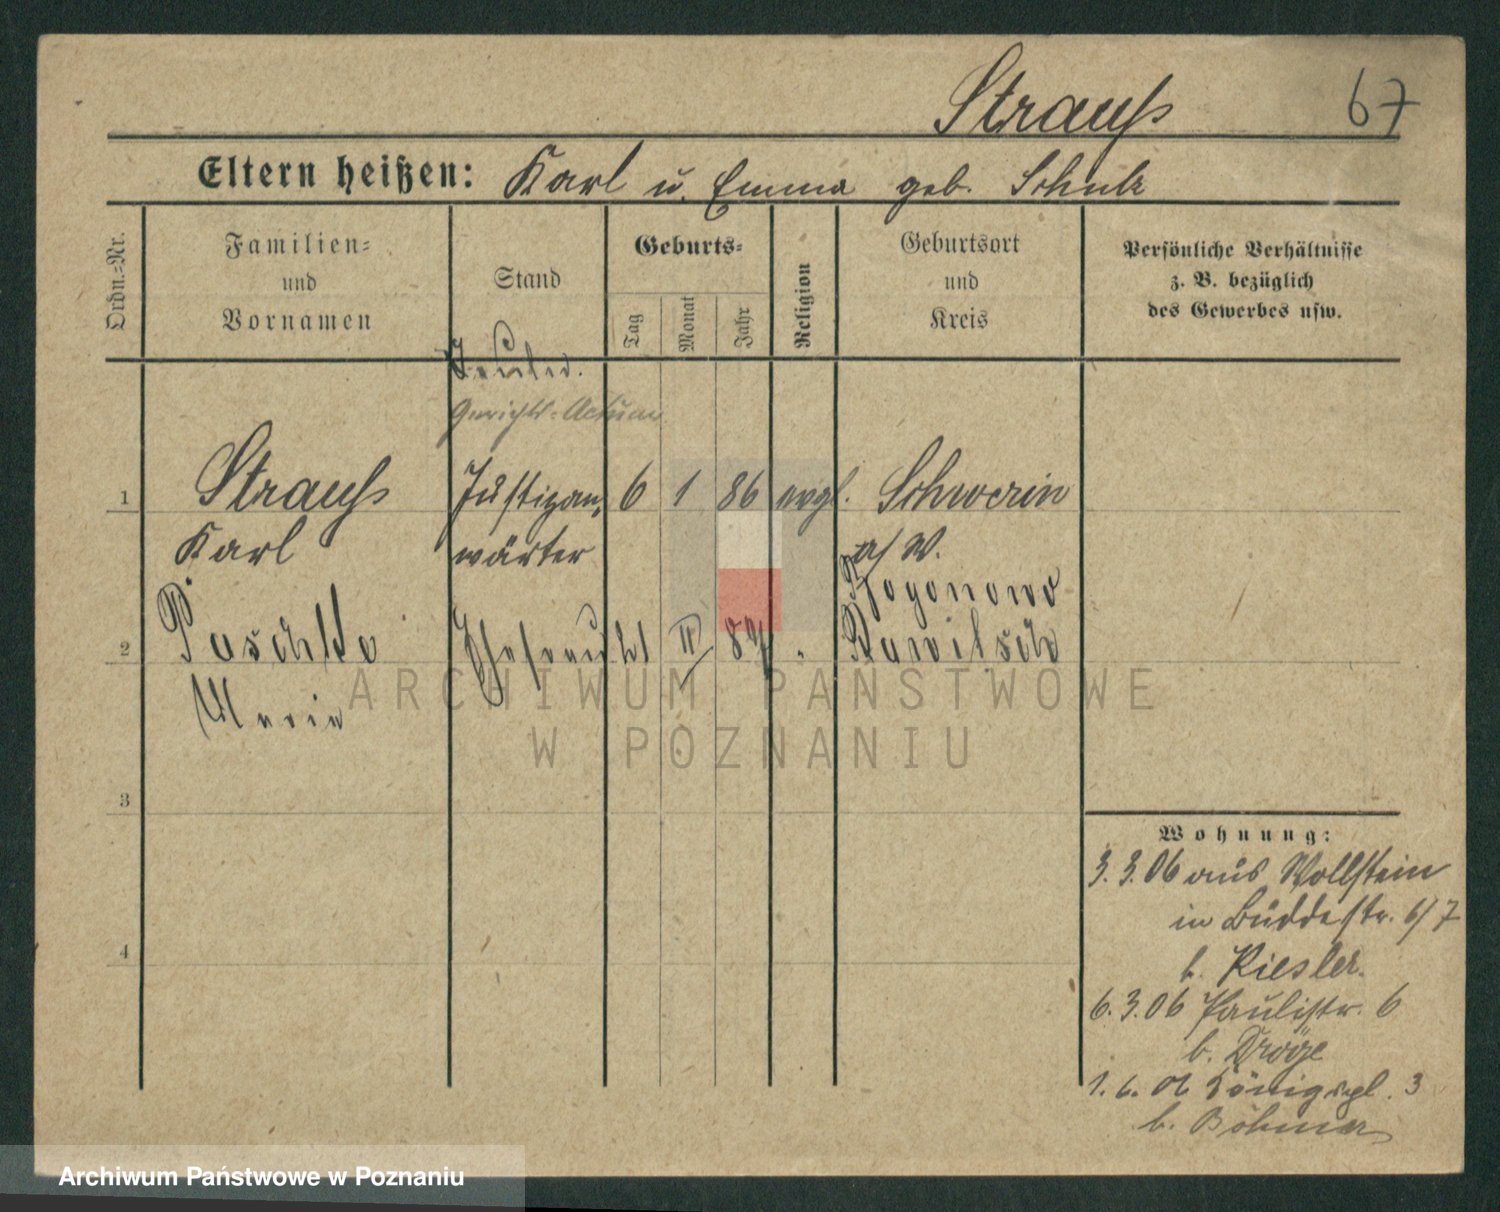 Strauß 67
Eltern heißen: Karl u. Emma geb. Schulz
Ordn.-Nr.
Familien-
und
Vornamen
Stand
Geburts-
Tag
Monat
Jahr
Religion
Geburtsort
und
Kreis
Persönliche Verhältnisse
z. B. bezüglich
des Gewerbes usw.
Gerichts-Actuar
1 Strauß Justizan- 6 1 86 evgl. Schwerin
Karl wärter a/ W.
Rogonowo
2 Paschke Ehefrau 21 II 87 Rawitsch
Maria
3
4
Wohnung:
3.3.06 aus Wollstein
in Buddestr. 6/7
b. Kiesler.
6.3.06 Paulistr. 6
b. Dröge
1.6.06 Königspl. 3
b. Böhmer
ARCHIWUM PAŃSTWOWE
W POZNANIU
Archiwum Państwowe w Poznaniu